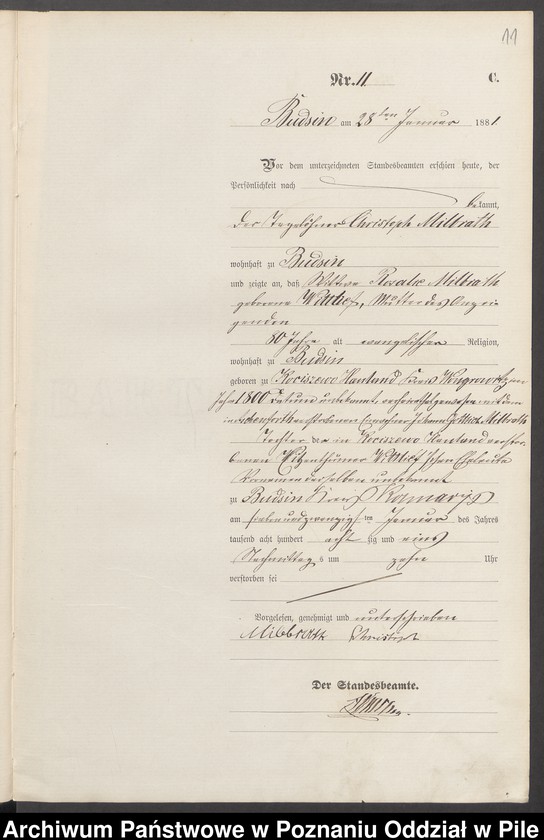 11
Nr. 11 C.
Budsin am 28ten Januar 1881
Vor dem unterzeichneten Standesbeamten erschien heute, der
Persönlichkeit nach
bekannt,
der Tagelöhner Christoph Milbrath
wohnhaft zu Budsin
und zeigte an, daß Wittwe Rosalie Milbrath
geborene Mutter des Anzei
genden
80 Jahre alt evangelischer Religion,
wohnhaft zu Budsin
geboren zu Kociszewo Hauland Kreis Wongrowitz im
Jahre 1800 Datum unbekannt
Milbrath
Tochter der in Kociszewo Hauland verstor
benen Eigenthümer schen Eheleute
Vornamen derselben unbekannt
zu Budsin Kreis
am siebenundzwanzigsten Januar des Jahres
tausend acht hundert achtzig und eins
Nachmittags um zehn Uhr
verstorben sei
Vorgelesen, genehmigt und unterschrieben
Milbrath Christoph
Der Standesbeamte.
Archiwum Państwowe w Poznaniu Oddział w Pile